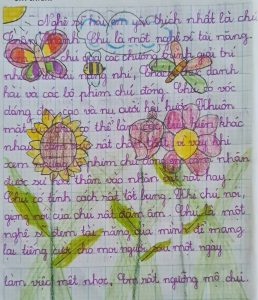 Nghệ sĩ hài em yêu thích nhất là chú
Thành. Chú là một nghệ sĩ tài năng.
của các chương trình giải trí
như tài năng nhí, danh
hài và các bộ phim chú đóng. Chú có vóc
dáng cao và nụ cười hài hước. Khuôn
mặt có thể làm khác
nhau rất vì vậy khi
xem phim chú đóng nhân
được sự thân vào nhân vật rất hay.
Chú có tính cách rất tốt bụng. Khi chú nói,
giọng nói của chú rất đầm ấm. Chú là một
nghệ sĩ đem tài năng của mình để mang
lại tiếng cười cho mọi người sau một ngày
làm việc mệt nhọc. Em rất ngưỡng mộ chú.